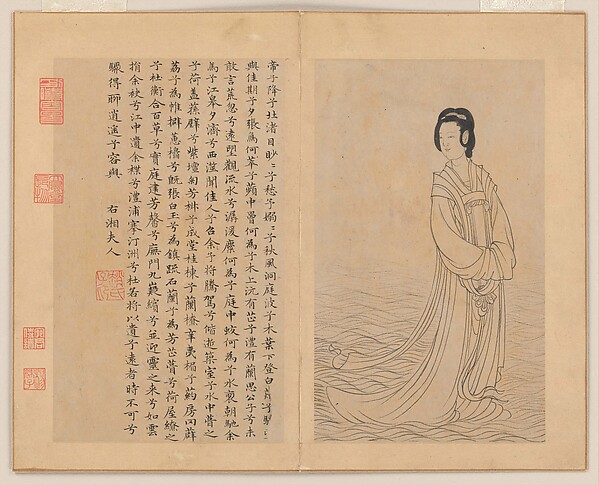 帝子降兮北渚目眇〻兮愁予嫋〻兮秋風洞庭波兮木葉下登白薠兮騁〻
與佳期兮夕張鳥何萃兮蘋中罾何為兮木上沅有芷兮澧有蘭思公子兮未
敢言荒忽兮遠望觀流水兮潺湲麋何為兮庭中蛟何為兮水裔朝馳余
馬兮江皋夕濟兮西澨聞佳人兮召余兮將騰駕兮偕逝築室兮水中葺之
兮荷蓋蓀壁兮紫壇匊芳椒兮成堂桂棟兮蘭橑辛夷楣兮葯房罔薜
荔兮為帷擗蕙櫋兮既張白玉兮為鎮疏石蘭兮為芳芷葺兮荷屋繚之
兮杜衡合百草兮實庭建芳馨兮廡門九嶷繽兮並迎靈之來兮如雲
捐余袂兮江中遺余褋兮澧浦搴汀洲兮杜若將以遺兮遠者時不可兮
驟得聊逍遙兮容與
右湘夫人
趙氏子昂